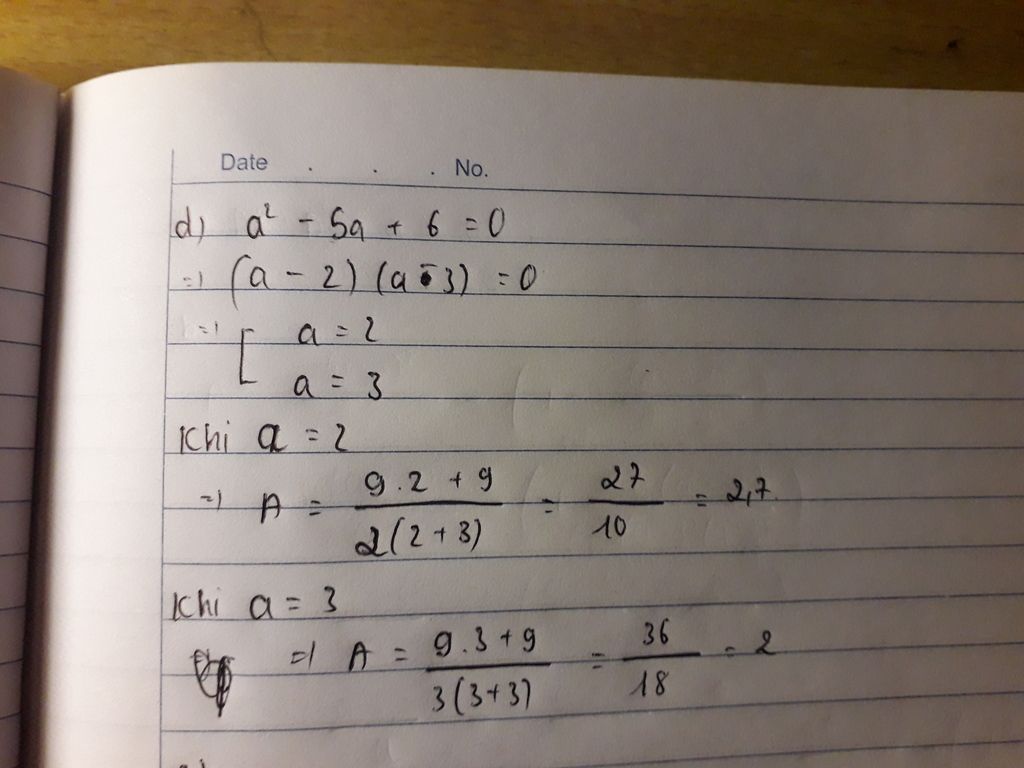 Date . . . No.
d) a² - 5a + 6 = 0
=) (a - 2) (a - 3) = 0
=) [ a = 2
a = 3
Khi a = 2
=) A = (9.2 + 9)/(2(2+3)) = 27/10 = 2,7
Khi a = 3
=) A = (9.3+9)/(3(3+3)) = 36/18 = 2